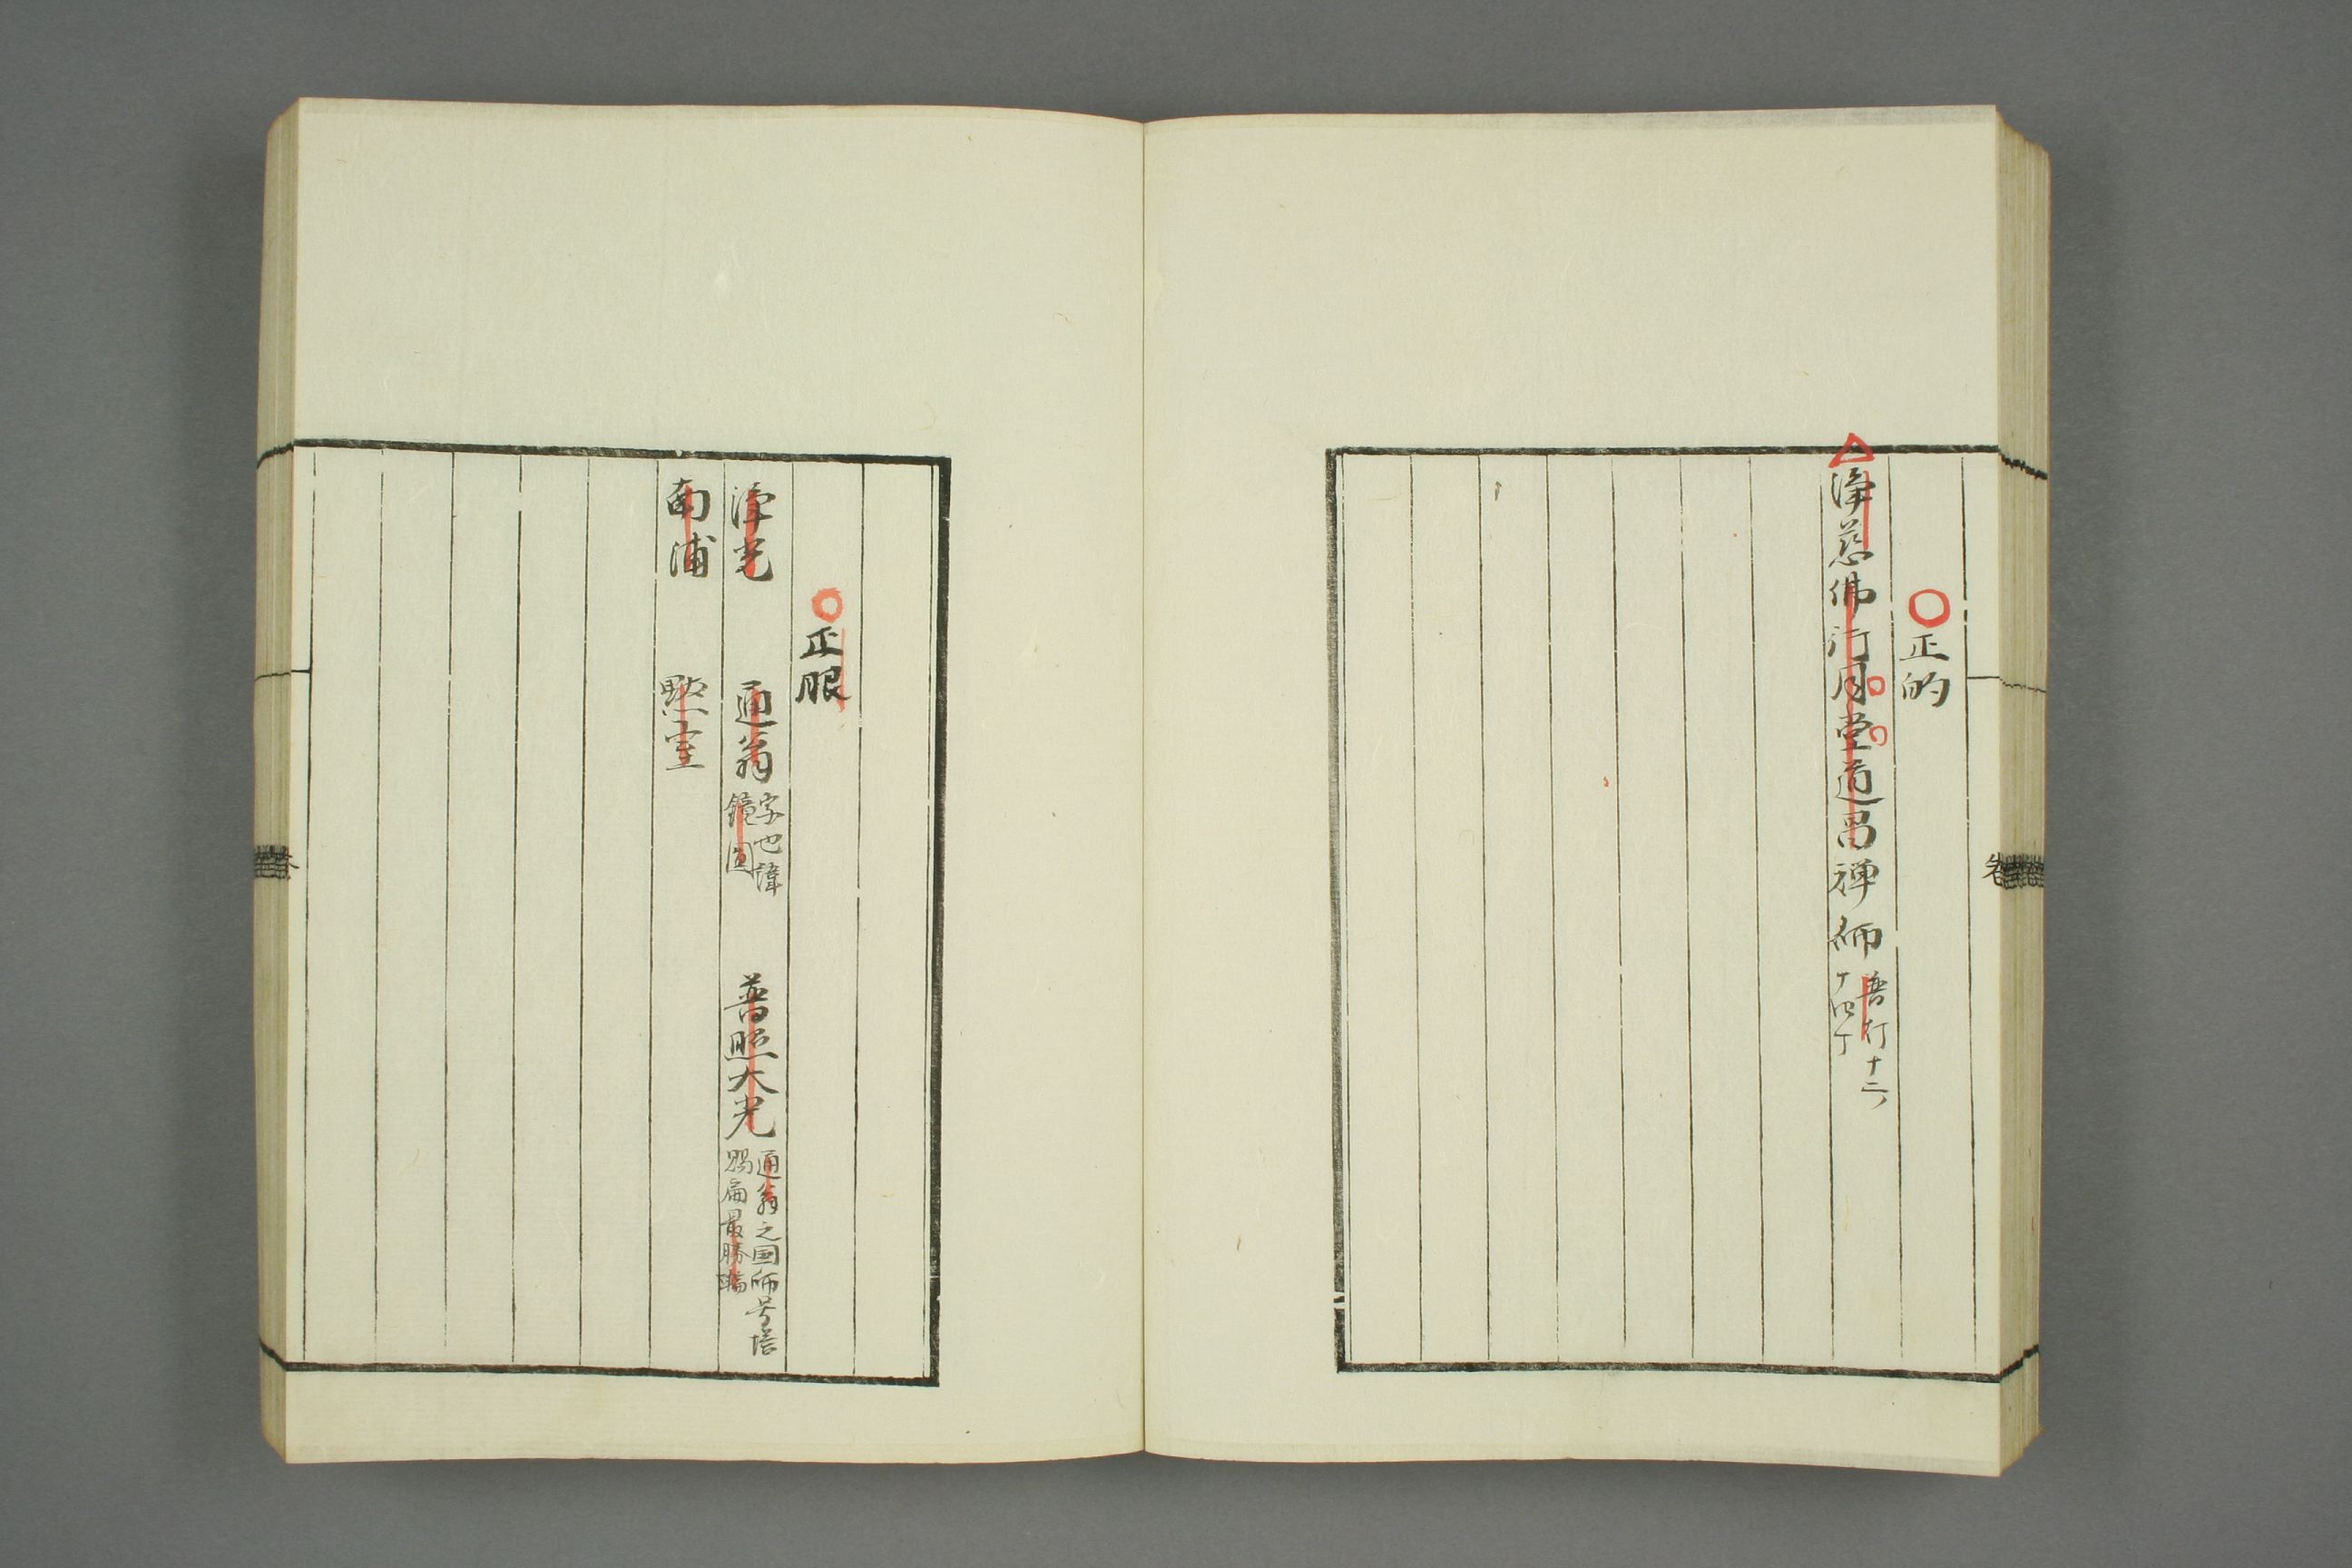 正的
浄慈佛行月堂道昌禅師
普灯十二
十四丁
正眼
淳光 通翁
字也諱
鏡圓
普照大光
通翁之国師号塔
賜扁最勝輪
南浦 黙室